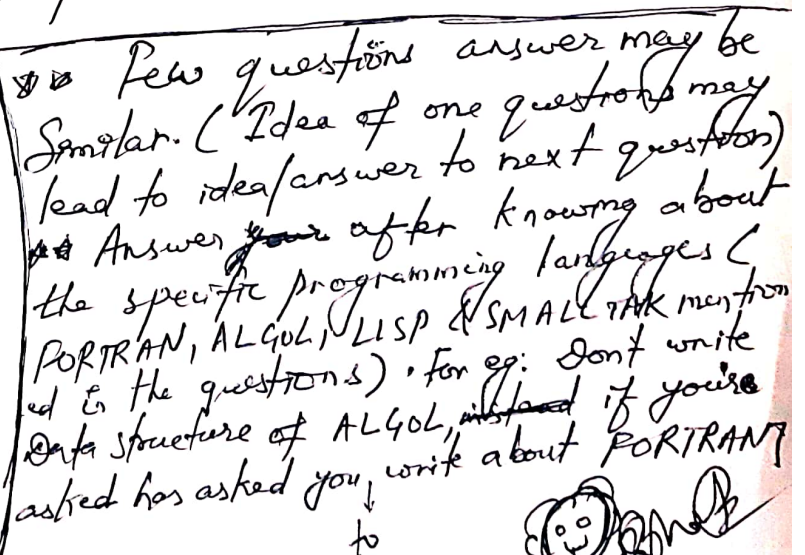 ** Few questions answer may be
Similar. ( Idea of one questions may
lead to idea/answer to next question)
** Answer after knowing about
the specific programming languages (
FORTRAN, ALGOL, LISP & SMALLTAK mention
ed in the questions) . For eg: Dont write
Data structure of ALGOL, if you're
asked has asked you, write about FORTRAN
to